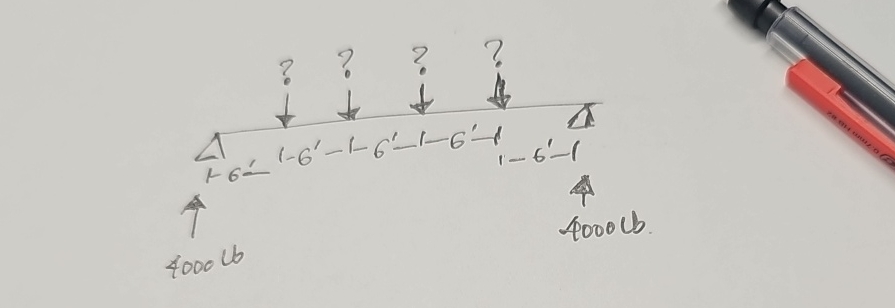 ? ? ? ?
6' 6' 6' 6' 6'
4000 lb 4000 lb.